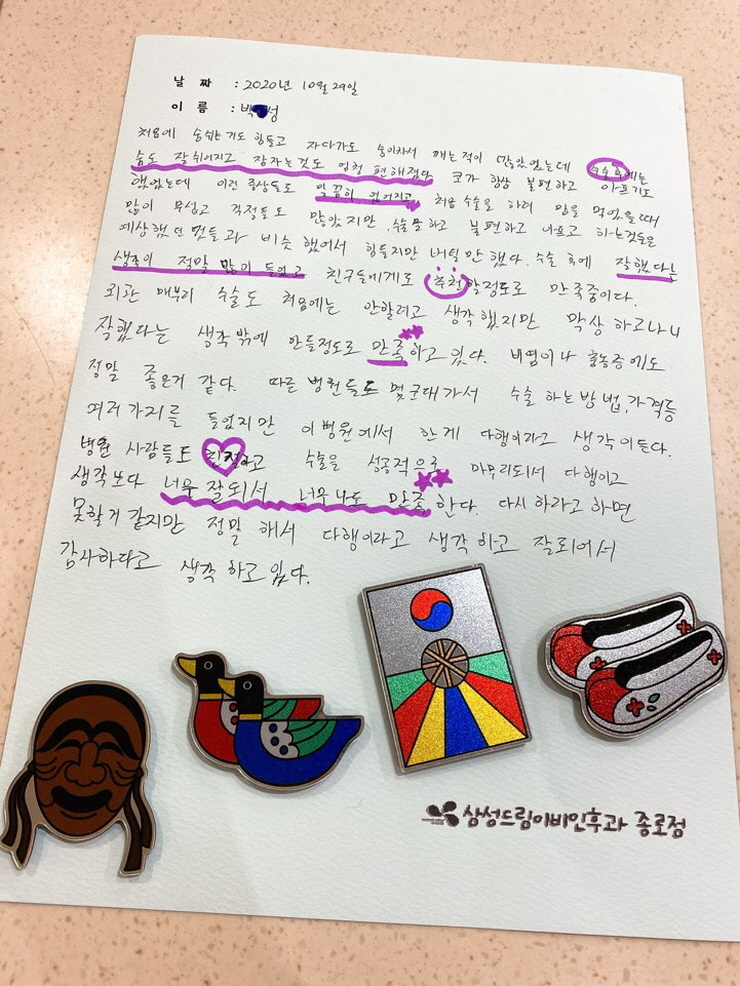 날 짜 : 2020년 10월 29일
이 름 : 박 성
처음에 숨쉬는거도 힘들고 자다가도 숨이차서 깨는적이 많았었는데 수술후에는
숨도 잘쉬어지고 잠자는것도 엄청 편해졌다 코가 항상 불편하고 아프기도
했었는데 이런 증상들도 말끔히 없어지고, 처음 수술을 하려 맘을 먹었을때
많이 무섭고 걱정들도 많았지만, 수술을하고 불편하고 아프고 하는것들은
예상했던 것들과 비슷했어서 힘들지만 버틸만했다. 수술 후에 잘했다는
생각이 정말 많이 들었고 친구들에게도 추천할정도로 만족중이다.
외관 매부리 수술도 처음에는 안할려고 생각했지만 막상 하고나니
잘했다는 생각밖에 안들정도로 만족하고 있다. 비염이나 축농증에도
정말 좋은거 같다. 따른 병원들도 몇군대가서 수술 하는방법, 가격등
여러가지를 들었지만 이병원에서 한게 다행이라고 생각이든다.
병원 사람들도 친절하고 수술을 성공적으로 마무리되서 다행이고
생각보다 너무 잘되서 너무나도 만족한다. 다시 하라고하면
못할거 같지만 정말 해서 다행이라고 생각하고 잘되어서
감사하다고 생각하고 있다.
삼성드림이비인후과 종로점